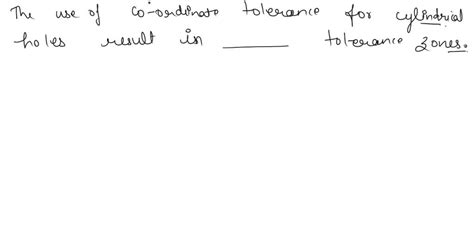 The use of co-ordinate tolerance for cylindrial
holes result in ________ tolerance zones.